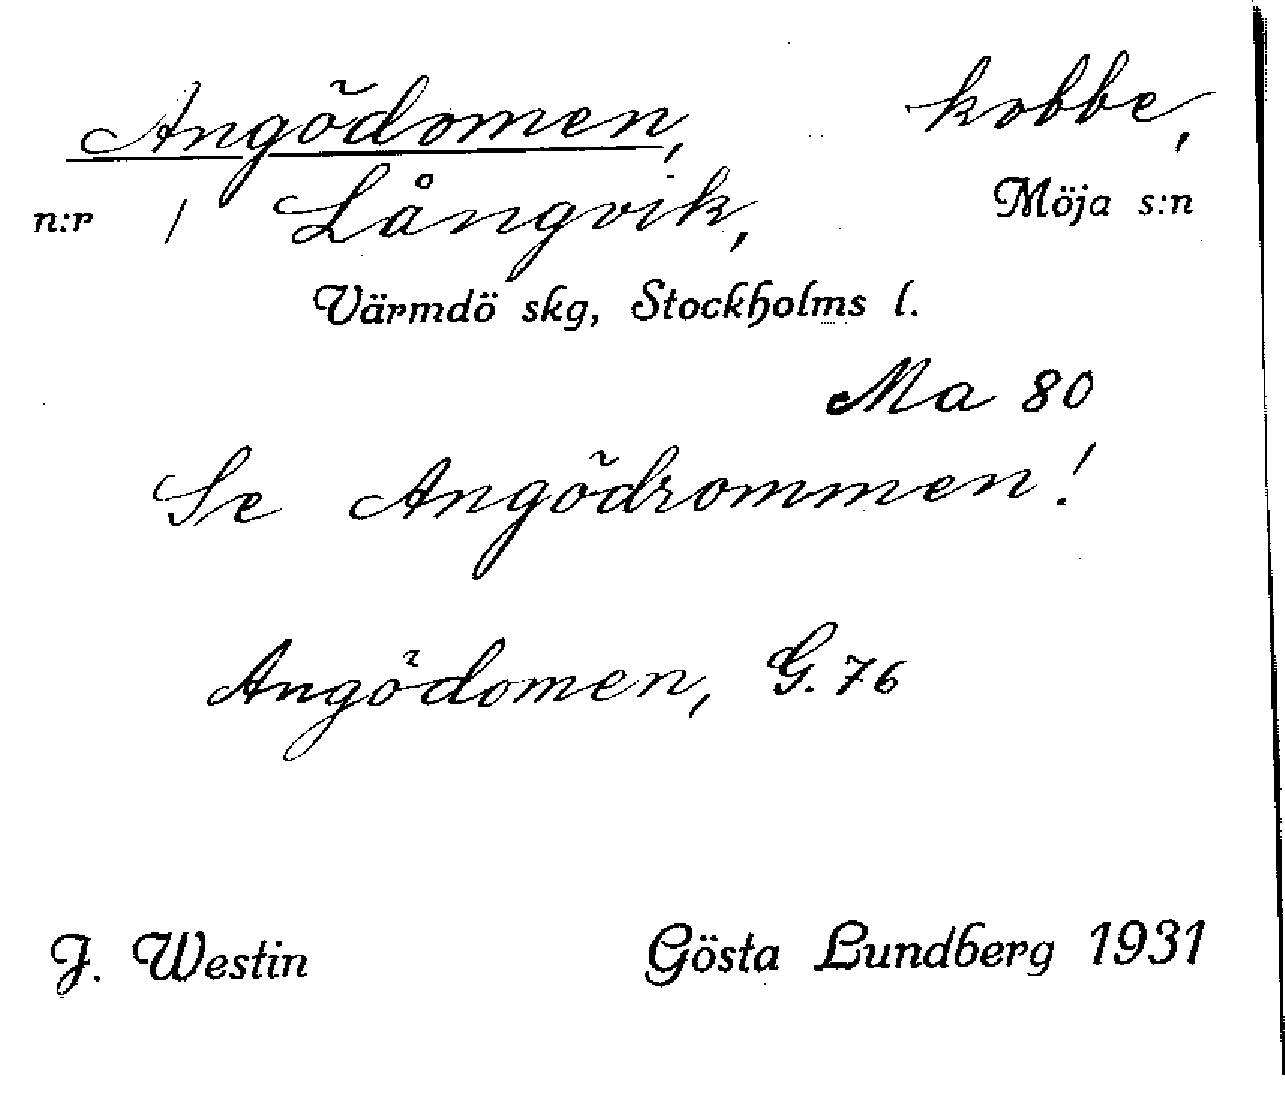 Angödomen, kobbe,
n:r 1 Långvik, Möja s:n
Värmdö skg, Stockholms l.
Ma 80
Se Angödrommen!
Angödomen, G. 76
J. Westin Gösta Lundberg 1931